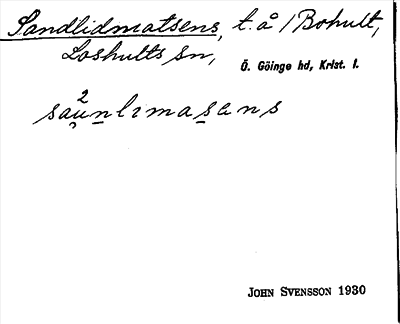 Sandlidmatsens, t.å / Bohult,
Loshults sn, Ö. Göinge hd, Krist. l.
sa2u̯n̲lımas̲ɑns
JOHN SVENSSON 1930